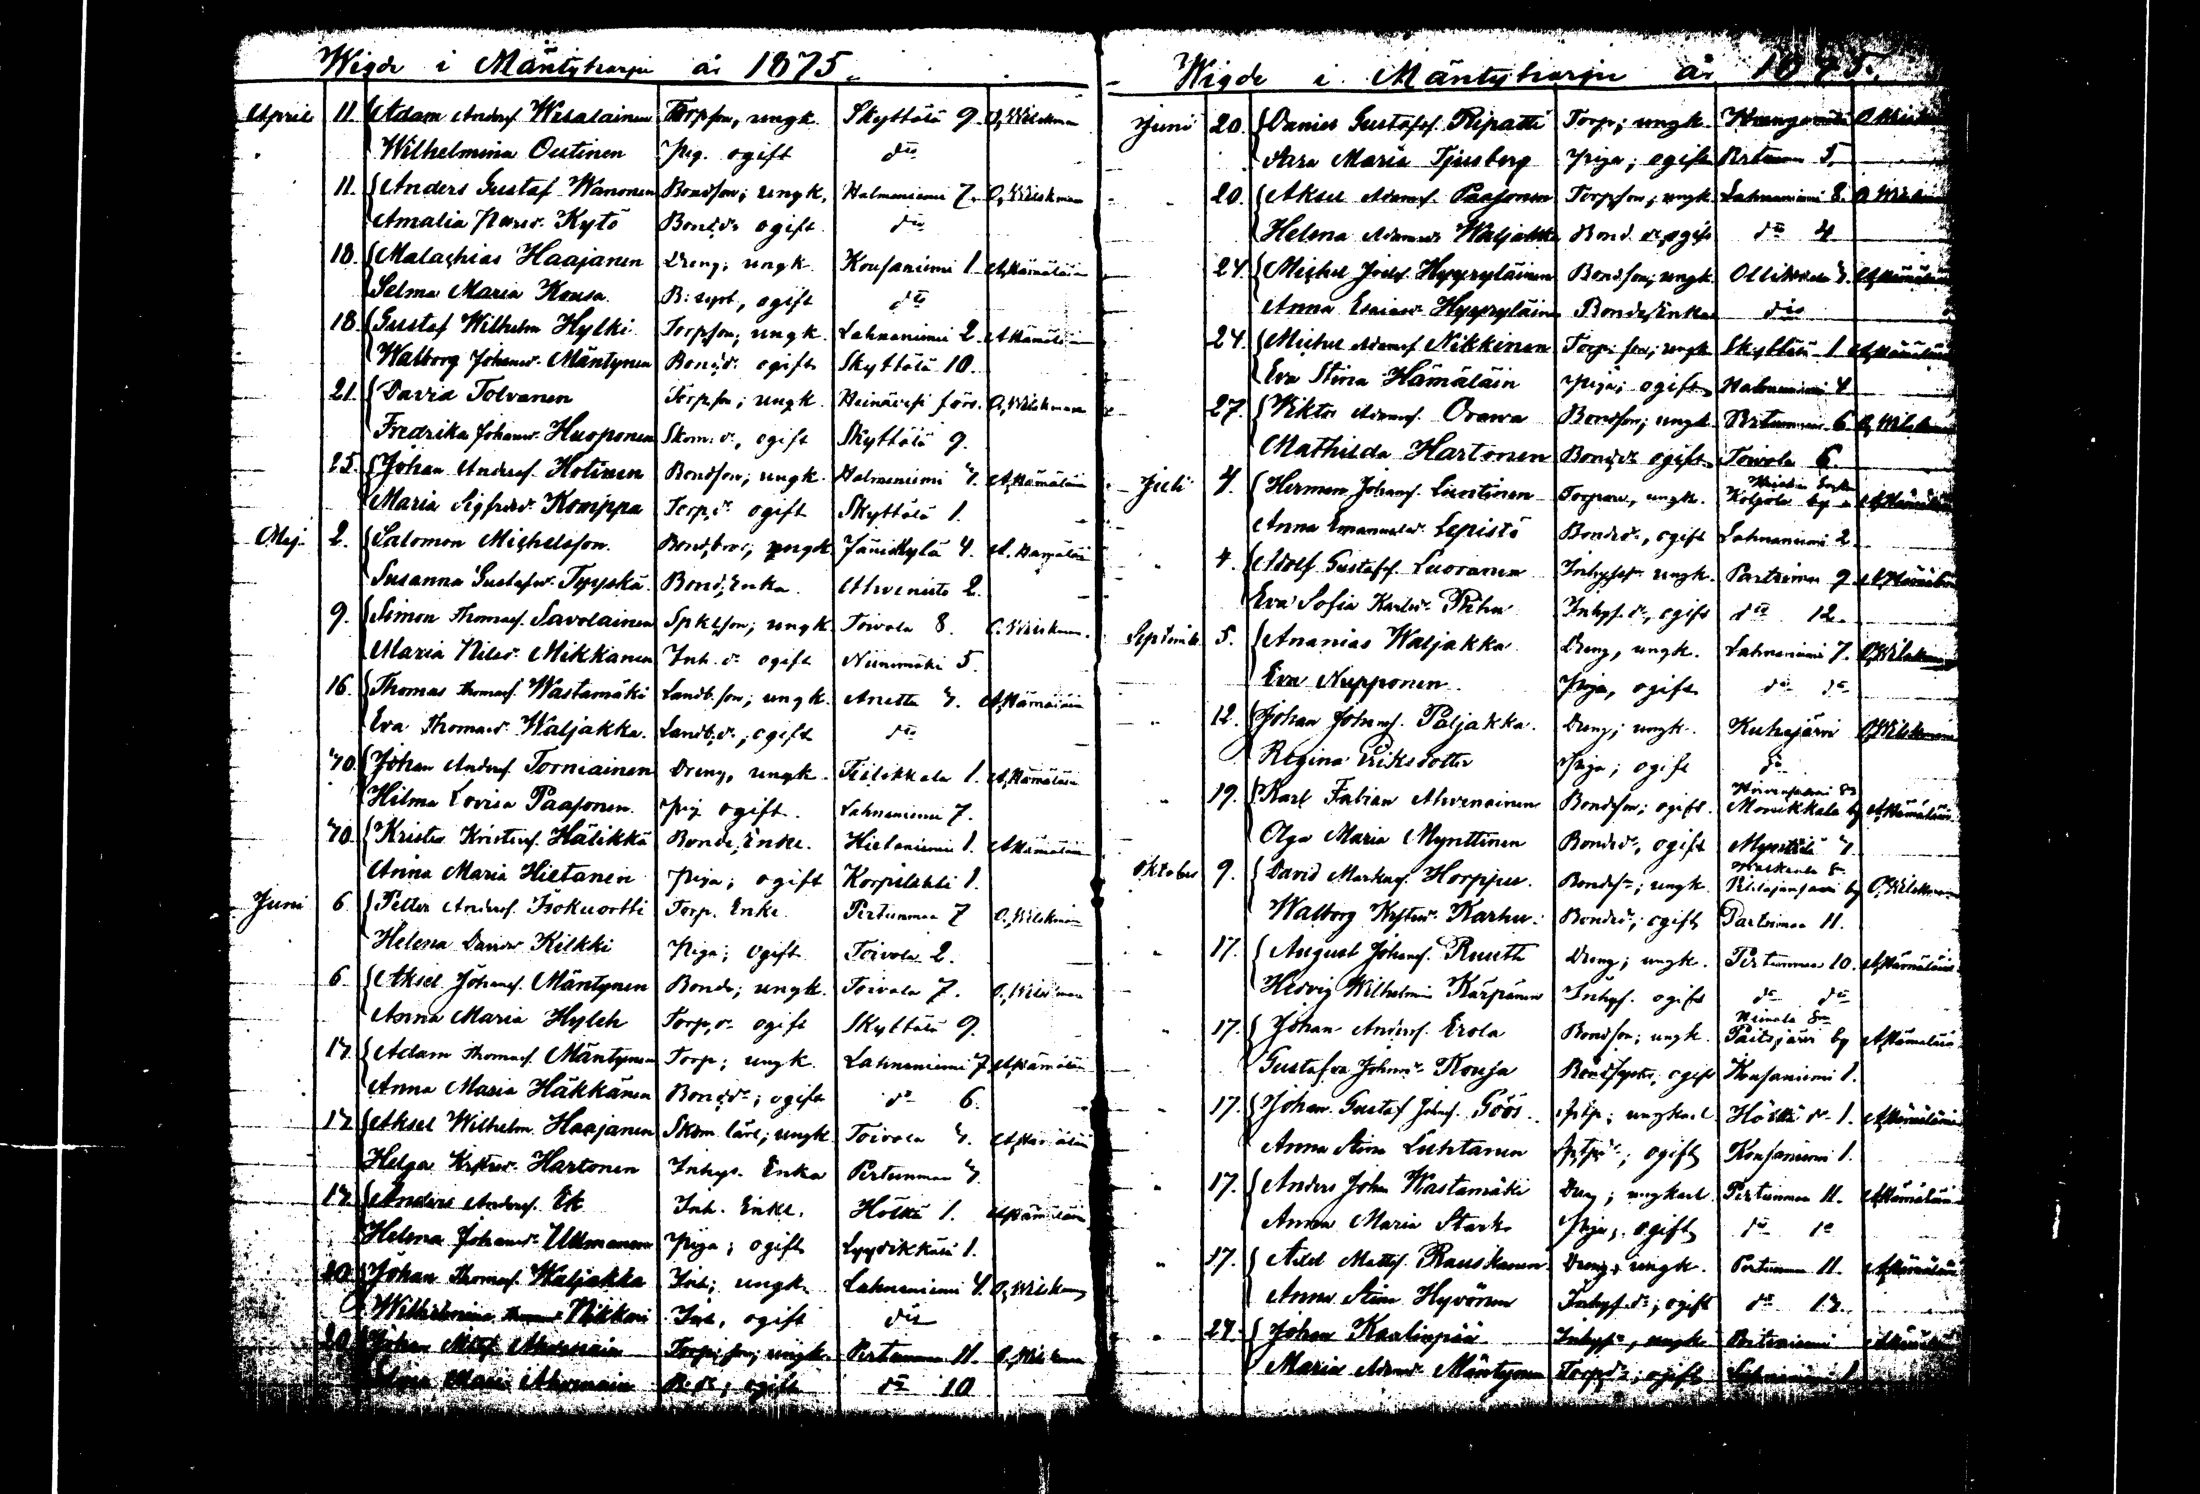 Wigde i Mäntyharju år 1875.
April 11. Adam Andersf. Wesalainen Torpson, ungk. Skyttälä 9. O. Wilskman
Wilhelmina Outinen Pig. ogift dto
11. Anders Gustaf Wanonen Bondson; ungk. Halmeniemi 7. O. Wilskman
Amalia Kytö Bond.dr ogift dto
18. Malachias Haajanen Dreng; ungk. Kousaniemi 1. A. Hämäläin
Selma Maria Kousa B: syst, ogift dto
18. Gustaf Wilhelm Hylki Torpson; ungk. Lahnaniemi 2. A. Hämäläin
Walborg Johansdr Mäntynen Bond.dr ogift Skyttälä 10.
21. David Tolvanen Torpson; ungk. Heinävesi förs. O. Wilskman
Fredrika Johansdr Huoponen Skom: dr, ogift Skyttälä 9.
25. Johan Andersf. Hotinen Bondson; ungk. Halmeniemi 7. A. Hämäläin
Maria Sigfridsdr Komppa Torp.dr ogift Skyttälä 1.
Maj. 2. Salomon Michelsson. Bond.bror; ungk Jänishylä 4. A. Hämäläin
Susanna Gustafsdr Tyyskä. Bond: Enka. Ahvenisto 2.
9. Simon Thomasf. Savolainen ungk Toivola 8. O. Wilskman.
Maria Nilsdr Mikkanen Inh. dr ogift Niinimäki 5.
16. Thomas Thomasf. Wastamäki Landb. son; ungk. Anetta 7. A. Hämäläin
Eva Thomasdr Waljakka. Landb:dr; ogift dto
70. Johan Andersf. Torniainen Dreng, ungk. 1. A. Hämäläin
Hilma Lovisa Paasonen. Pig ogift. Lahnaniemi 7.
70. Krister Kristersf. Hälikkä Bonde, Enkl. Hietaniemi 1. A. Hämäläin
Anna Maria Hietanen Piga; ogift Korpilahti 1.
Juni 6 Petter Andersf. Isokuortti Torp. Enkl. Pertunmaa 7 O. Wilskman
Helena Davidsdr Kilkki Piga; Ogift Toivola 2.
6. Aksel Johansf. Mäntynen Bonde; ungk. Toivola 7. O. Wilskman
Anna Maria Hyleh Torp, dr ogift Skyttälä 9.
17. Adam Thomasf. Mäntynen Torp; ungk. Lahnaniemi 7 A. Hämäläin
Anna Maria Häkkänen Bond:dr; ogift dto 6.
17. Aksel Wilhelm Haajanen Skom. lärl; ungk Toivola 7. A. Hämäläin
Helga Kristersdr Hartonen Inhys. Enka Pertunmaa 7.
17. Anders Andersf. Ek Inh. Enkl. Hölttä 1. A. Hämäläin
Helena Johansdr Ullmanen Piga; ogift Lyydikkälä 1.
20. Johan Thomasf. Waljakka Inh; ungk. Lahnaniemi 4. O. Wilskman
Wilhelmina Nikkari Inh, ogift dto
20. Johan Ahvenain Torp: son; ungk. Pertunmaa 11. O. Wilskman
Maria Ahvenain B. dr; ogift dto 10
Wigde i Mäntyharju år 1875.
Juni 20. Daniel Gustafsf. Ripatti Torp; ungk. O. Wilskman
Maria Tjusberg Piga; ogift Pertunmaa 5.
20. Aksel Adamsf. Paasonen Torpson; ungk. Lahnaniemi 8. O. Wilskman
Helena Adamsdr Waljakka Bond. dr, ogift dto 4
24. Michel Josefsf. Hyyryläinen Bondson; ungk. Ollikkala 7. A. Hämäläin
Anna Esaiasdr Hyyryläinen Bonds, Enka dto
24. Michel Adamsf. Nikkinen Torp: son; ungk Skyttälä 1 A. Hämäläin
Eva Stina Hämäläin Piga; ogift Halmeniemi 4
27. Viktor Adamsf. Orawa Bondson; ungk. Pertunmaa 6. O. Wilskman
Mathilda Hartonen Bond:dr ogift Toivola 6.
Juli 4. Herman Johansf. Luostinen Torpare, ungk. Kolpola by A. Hämäläin
Anna Emanuelsdr Lepistö Bondedr, ogift Lahnaniemi 2.
4. Adolf Gustafsf. Luoranen ungk. Partsimaa 9 A. Hämäläin
Eva Sofia Karlsdr Piha Inhys. dr, ogift dto 12.
Septemb. 5. Ananias Waljakka Dreng, ungk. Lahnaniemi 7. O. Wilskman
Eva Nupponen. Piga, ogift dto dto
12. Johan Johansf. Paljakka. Dreng; ungk. Kuhajärvi O. Wilskman
Regina Eriksdotter Piga; ogift dto
19. Karl Fabian Ahvenainen Bondson; ogift. Hirvensalmi Monikkala by A. Hämäläin
Olga Maria Mynttinen Bondedr, ogift Mynttilä 7.
Oktober 9. David Markusf. Horppu. ungk. by O. Wilskman
Walborg Karhu. Bondedr; ogift Partsimaa 11.
17. August Johansf. Ruuth Dreng; ungk. Pertunmaa 10. A. Hämäläin
Hedvig Wilhelmin Kärpänen Inhys. ogift dto dto
17. Johan Andersf. Erola Bondson; ungk. Heinola Sn Paitsjärvi by A. Hämäläin
Gustafva Johansdr Kousa Bondsyster, ogift Kousaniemi 1.
17. Johan Gustaf Johansf. Göös. ungkarl Hölttä 1. A. Hämäläin
Anna Stina Luhtanen ogift Kousaniemi 1.
17. Anders Johan Wastamäki Dreng; ungkarl Pertunmaa 11. A. Hämäläin
Anna Maria Stark. Piga; ogift dto dto
17. Adel Mattsf. Rauskanen. Dreng; ungk. Pertunmaa 11. A. Hämäläin
Anna Stina Hyvönen Inhys. dr; ogift dto 17.
24. Johan Kaalinpää ungk A. Hämäläin
Maria Adamsdr Mäntynen Torp,dr; ogift Lahnaniemi 1